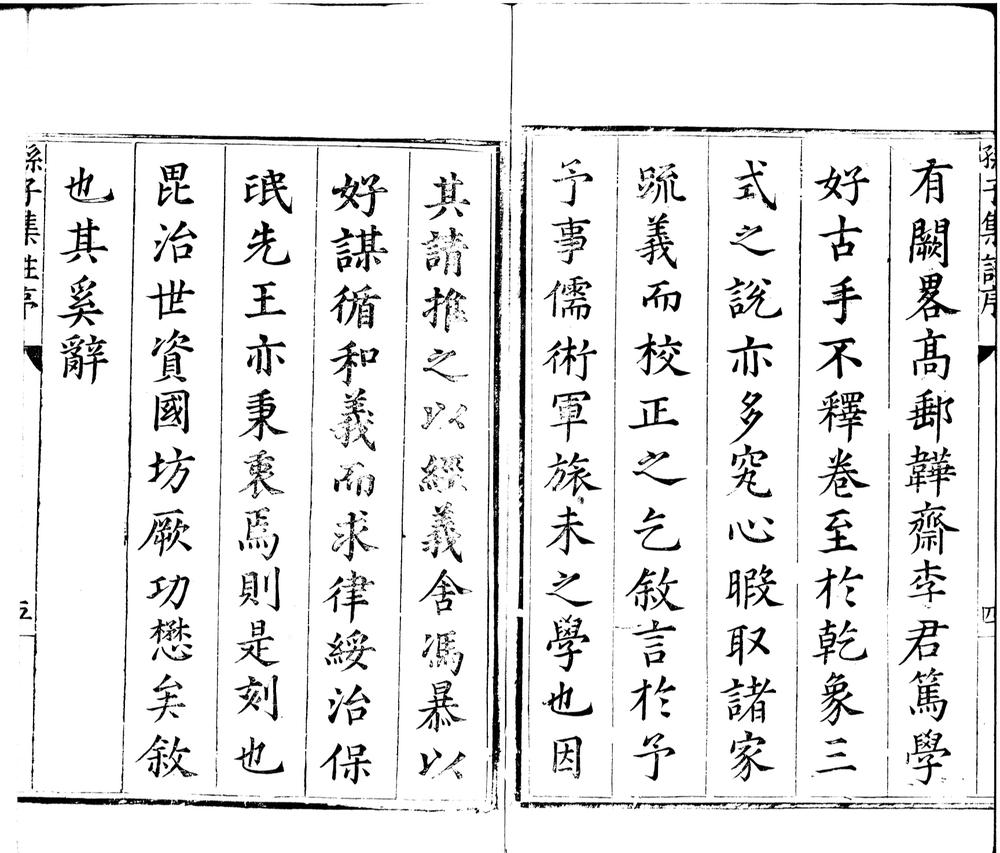 孫子集註序
四
有闕畧高郵韡齋李君篤學
好古手不釋卷至於乾象三
式之說亦多究心暇取諸家
䟽義而校正之乞敘言於予
予事儒術軍旅未之學也因
其請推之以經義舍馮暴以
好謀循和義而求律綏治保
氓先王亦秉衷焉則是刻也
毘治世資國坊厥功懋矣敘
也其奚辭
孫子集註序
五